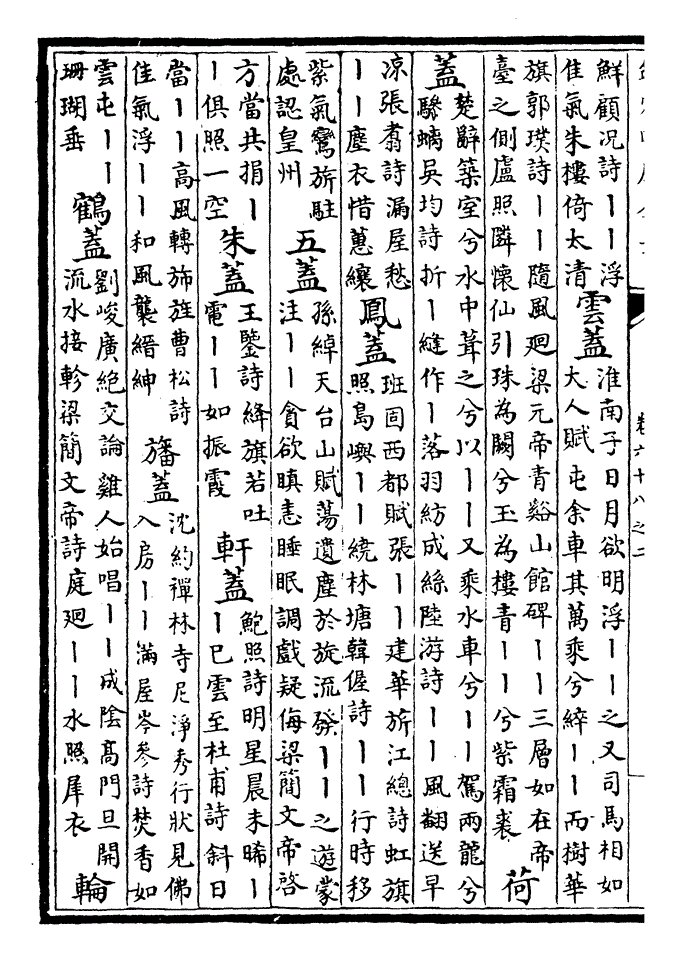 卷六十八之二
鮮顧况詩丨丨浮
佳氣朱樓倚太清
雲蓋
淮南子日月欲明浮丨丨之又司馬相如
大人賦屯余車其萬乘兮綷丨丨而樹華
旗郭璞詩丨丨隨風廻梁元帝青谿山館碑丨丨三層如在帝
臺之側盧照隣懷仙引珠為闕兮玉為樓青丨丨兮紫霜裘
荷
蓋
楚辭築室兮水中葺之兮以丨丨又乘水車兮丨丨駕兩龍兮
驂螭吳均詩折丨縫作丨落羽紡成絲陸游詩丨丨風翻送早
凉張翥詩漏屋愁
丨丨塵衣惜蕙纕
鳳蓋
班固西都賦張丨丨建華旂江總詩虹旗
照島嶼丨丨繞林塘韓偓詩丨丨行時移
紫氣鸞旂駐
處認皇州
五蓋
孫綽天台山賦蕩遺塵於旋流發丨丨之遊蒙
注丨丨貪欲瞋恚睡眠調戲疑侮梁簡文帝啓
方當共捐丨
丨俱照一空
朱蓋
王鑒詩絳旗若吐
電丨丨如振霞
軒蓋
鮑照詩明星晨未晞丨
丨已雲至杜甫詩斜日
當丨丨高風轉斾旌曹松詩
佳氣浮丨丨和風襲縉紳
旛蓋
沈約禪林寺尼淨秀行狀見佛
入房丨丨滿屋岑參詩焚香如
雲屯丨丨
珊瑚垂
鶴蓋
劉峻廣絕交論雞人始唱丨丨成陰高門旦開
流水接軫梁簡文帝詩庭廻丨丨水照犀衣
輪